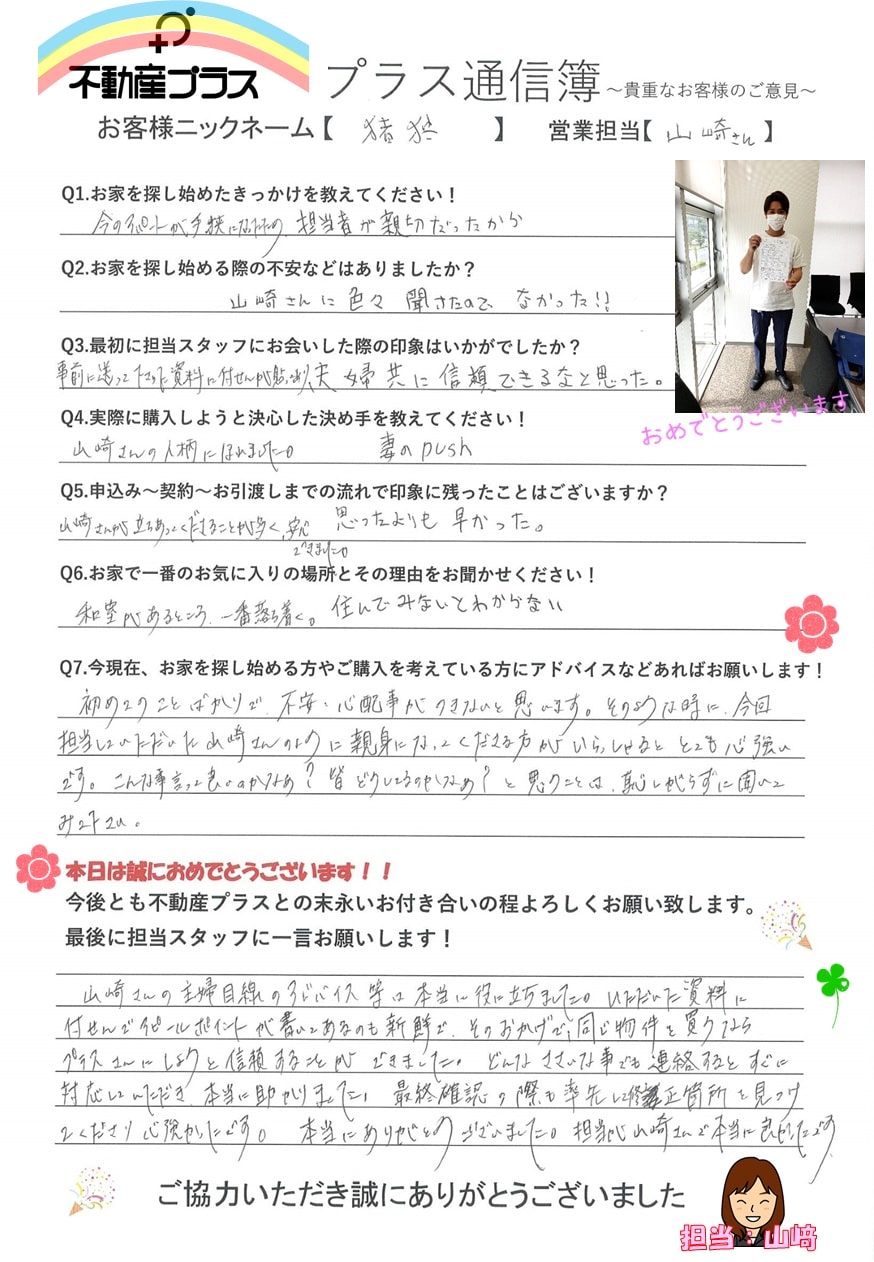 不動産プラス
プラス通信簿 ～貴重なお客様のご意見～
お客様ニックネーム【 】 営業担当【 山崎さん 】
Q1.お家を探し始めたきっかけを教えてください！
今のアパートが手狭になったため、担当者が親切だったから
Q2.お家を探し始める際の不安などはありましたか？
山崎さんに色々聞きたので なかった!!
Q3.最初に担当スタッフにお会いした際の印象はいかがでしたか？
事前に送って下さった資料に付せんが貼ってあり、夫婦共に信頼できるなと思った。
Q4.実際に購入しようと決心した決め手を教えてください！
山崎さんの人柄にほれました。 妻のpush
おめでとうございます
Q5.申込み～契約～お引渡しまでの流れで印象に残ったことはございますか？
山崎さんが立ちあってくださることが多く、安心 思ったよりも早かった。
できました。
Q6.お家で一番のお気に入りの場所とその理由をお聞かせください！
和室があるところ、一番落ち着く。 住んでみないとわからない
Q7.今現在、お家を探し始める方やご購入を考えている方にアドバイスなどあればお願いします！
初めてのことばかりで、不安・心配事がつきないと思います。そのような時に、今回
担当していただいた山崎さんのように親身になってくださる方がいらっしゃるととても心強い
です。こんな事言って良いのかなあ？皆どうしてるのかなあ？と思うことは、恥しがらずに聞いて
みて下さい。
本日は誠におめでとうございます！！
今後とも不動産プラスとの末永いお付き合いの程よろしくお願い致します。
最後に担当スタッフに一言お願いします！
山崎さんの主婦目線のアドバイス等は本当に役に立ちました。いただいた資料に
付せんでアピールポイントが書いてあるのも新鮮で、そのおかげで、同じ物件を買うなら
プラスさんにしようと信頼することができました。どんなささいな事でも連絡するとすぐに
対応していただき、本当に助かりました。最終確認の際も率先して修正箇所を見つけ
てくださり心強かったです。 本当にありがとうございました。担当が山崎さんで本当に良かったです
ご協力いただき誠にありがとうございました
担当：山﨑